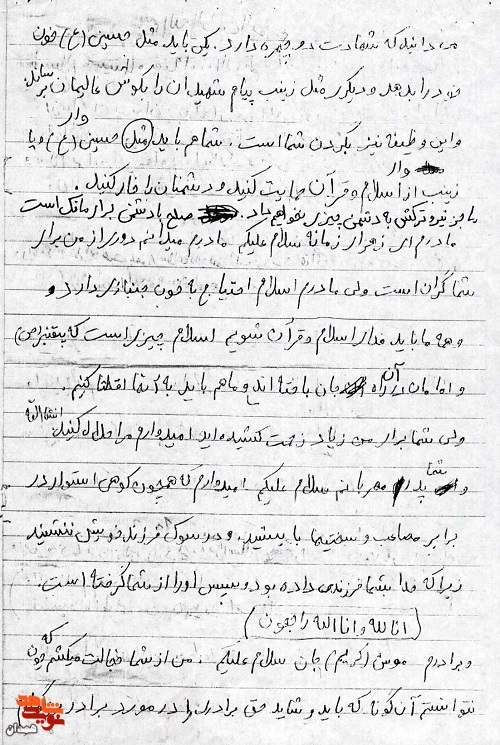 می دانید که شهادت دو چهره دارد. یکی باید مثل حسین (ع) خون
خود را بدهد و دیگری مثل زینب پیام شهیدان را بگوش عالیمان برساند.
و این وظیفه نیز بگردن شما است. شما هم باید (مثل) حسین (ع) وار و یا
زینب وار از اسلام و قرآن حمایت کنید و دشمنان را خار کنید.
ما جز تیر و ترکش به دشمن چیزی نخواهیم داد. صلح با دشمن برای ما ننگ است
مادرم ای زهرای زمانه سلام علیکم مادرم میدانم دوری از من برای
شما گران است ولی مادرم اسلام احتیاج به خون دارد و
و همه ما باید فدای اسلام و قرآن شویم اسلام چیزی است که پیغمبر (ص)
و امامان در آن راه جان باخته اند و ما هم باید به آنها اقتدا کنیم.
ولی شما برای من زیاد زحمت کشیده اید امیدوارم مرا حلال کنید. انشاءالله
و شما پدر مهربانم سلام علیکم امیدوارم که همچون کوهی استوار در
برابر مصائب و سختیها بایستید. و در سوگ فرزند خویش ننشینید
زیرا که خدا بشما فرزندی داده بود و سپس او را از شما گرفته است.
(انا لله و انا الیه راجعون)
و برادرم (کریم) جان سلام علیکم. من از شما خجالت میکشم چون که
نتوانستم آن گونه که باید و شاید حق برادری را در مورد برادر